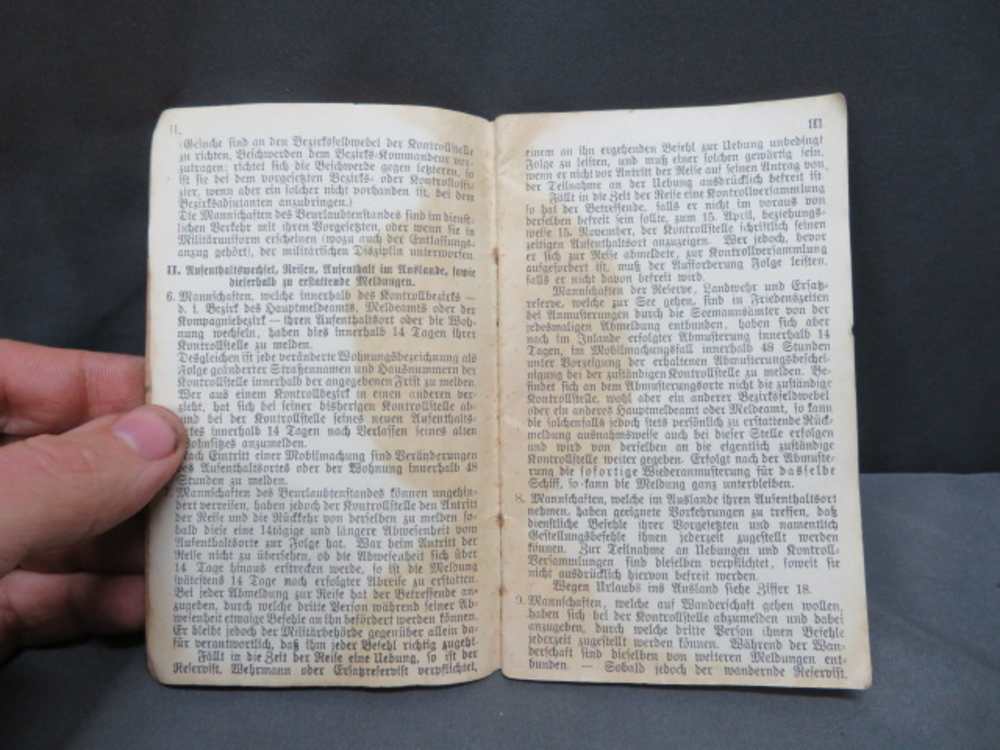 II.
(Gesuche sind an den Bezirksfeldwebel der Kontrollstelle
zu richten, Beschwerden dem Bezirks-Kommandeur vor-
zutragen; richtet sich die Beschwerde gegen letzteren, so
ist sie bei dem vorgesetzten Bezirks- oder Kontrolloffi-
zier, wenn aber ein solcher nicht vorhanden ist, bei dem
Bezirksadjutanten anzubringen.)
Die Mannschaften des Beurlaubtenstandes sind im dienst-
lichen Verkehr mit ihren Vorgesetzten, oder wenn sie in
Militäruniform erscheinen (wozu auch der Entlassungs-
anzug gehört), der militärischen Disziplin unterworfen.
II. Aufenthaltswechsel, Reisen, Aufenthalt im Auslande, sowie
dieserhalb zu erstattende Meldungen.
6. Mannschaften, welche innerhalb des Kontrollbezirks —
d. i. Bezirk des Hauptmeldeamts, Meldeamts oder der
Kompagniebezirk — ihren Aufenthaltsort oder die Woh-
nung wechseln, haben dies innerhalb 14 Tagen ihrer
Kontrollstelle zu melden.
Desgleichen ist jede veränderte Wohnungsbezeichnung als
Folge geänderter Straßennamen und Hausnummern der
Kontrollstelle innerhalb der angegebenen Frist zu melden.
Wer aus einem Kontrollbezirk in einen anderen ver-
zieht, hat sich bei seiner bisherigen Kontrollstelle ab-
und bei der Kontrollstelle seines neuen Aufenthalts-
ortes innerhalb 14 Tagen nach Verlassen seines alten
Wohnsitzes anzumelden.
Nach Eintritt einer Mobilmachung sind Veränderungen
des Aufenthaltsortes oder der Wohnung innerhalb 48
Stunden zu melden.
Mannschaften des Beurlaubtenstandes können ungehin-
dert verreisen, haben jedoch der Kontrollstelle den Antritt
der Reise und die Rückkehr von derselben zu melden so-
bald diese eine 14tägige und längere Abwesenheit vom
Aufenthaltsorte zur Folge hat. War beim Antritt der
Reise nicht zu übersehen, ob die Abwesenheit sich über
14 Tage hinaus erstrecken werde, so ist die Meldung
spätestens 14 Tage nach erfolgter Abreise zu erstatten.
Bei jeder Abmeldung zur Reise hat der Betreffende an-
zugeben, durch welche dritte Person während seiner Ab-
wesenheit etwaige Befehle an ihn befördert werden können.
Er bleibt jedoch der Militärbehörde gegenüber allein da-
für verantwortlich, daß ihm jeder Befehl richtig zugeht.
Fällt in die Zeit der Reise eine Uebung, so ist der
Reservist, Wehrmann oder Ersatzreservist verpflichtet,
III
einem an ihn ergehenden Befehl zur Uebung unbedingt
Folge zu leisten, und muß einer solchen gewärtig sein,
wenn er nicht vor Antritt der Reise auf seinen Antrag von
der Teilnahme an der Uebung ausdrücklich befreit ist.
Fällt in die Zeit der Reise eine Kontrollversammlung
so hat der Betreffende, falls er nicht im voraus von
derselben befreit sein sollte, zum 15. April, beziehungs-
weise 15. November, der Kontrollstelle schriftlich seinen
zeitigen Aufenthaltsort anzuzeigen. Wer jedoch, bevor
er sich zur Reise abmeldete, zur Kontrollversammlung
aufgefordert ist, muß der Aufforderung Folge leisten,
falls er nicht davon befreit wird.
Mannschaften der Reserve, Landwehr und Ersatz-
reserve, welche zur See gehen, sind in Friedenszeiten
bei Anmusterungen durch die Seemannsämter von der
jedesmaligen Abmeldung entbunden, haben sich aber
nach im Inlande erfolgter Abmusterung innerhalb 14
Tagen, im Mobilmachungsfall innerhalb 48 Stunden
unter Vorzeigung der erhaltenen Abmusterungsbeschei-
nigung bei der zuständigen Kontrollstelle zu melden. Be-
findet sich an dem Abmusterungsorte nicht die zuständige
Kontrollstelle, wohl aber ein anderer Bezirksfeldwebel
oder ein anderes Hauptmeldeamt oder Meldeamt, so kann
die solchenfalls jedoch stets persönlich zu erstattende Rück-
meldung ausnahmsweise auch bei dieser Stelle erfolgen
und wird von derselben an die eigentlich zuständige
Kontrollstelle weiter gegeben. Erfolgt nach der Abmuste-
rung die sofortige Wiederanmusterung für dasselbe
Schiff, so kann die Meldung ganz unterbleiben.
8. Mannschaften, welche im Auslande ihren Aufenthaltsort
nehmen, haben geeignete Vorkehrungen zu treffen, daß
dienstliche Befehle ihrer Vorgesetzten und namentlich
Gestellungsbefehle ihnen jederzeit zugestellt werden
können. Zur Teilnahme an Uebungen und Kontroll-
Versammlungen sind dieselben verpflichtet, soweit sie
nicht ausdrücklich hiervon befreit werden.
Wegen Urlaubs ins Ausland siehe Ziffer 18.
9. Mannschaften, welche auf Wanderschaft gehen wollen,
haben sich bei der Kontrollstelle abzumelden und dabei
anzugeben, durch welche dritte Person ihnen Befehle
jederzeit zugestellt werden können. Während der Wan-
derschaft sind dieselben von weiteren Meldungen ent-
bunden. — Sobald jedoch der wandernde Reservist,